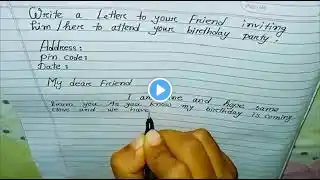 Write a Letters to your Friend inviting
him / here to attend your birethday party.
Address:
pin code:
Date:
My dear Friend
I am fine and hope same
from you As you know my birthday is coming
close and we have